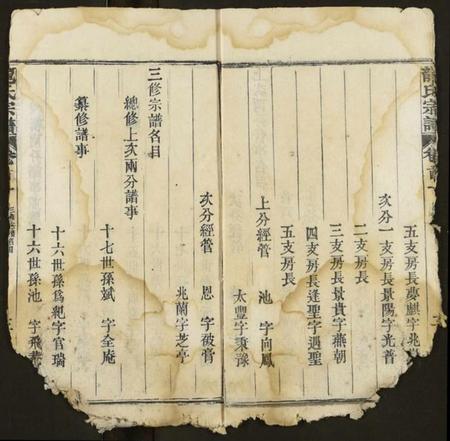 龍氏宗譜 卷首
五支房長夢麒字兆
次分一支房長景陽字光普
二支房長
三支房長景貴字燕朝
四支房長逢聖字遇聖
五支房長
上分經管 池 字向鳳
太豐字秉豫
次分經管 恩 字被膏
兆蘭字芝亭
三修宗譜名目
總修上次兩分譜事
十七世孫斌 字全庵
纂修譜事
十六世孫為紀字官瑞
十六世孫池 字飛
氏宗譜